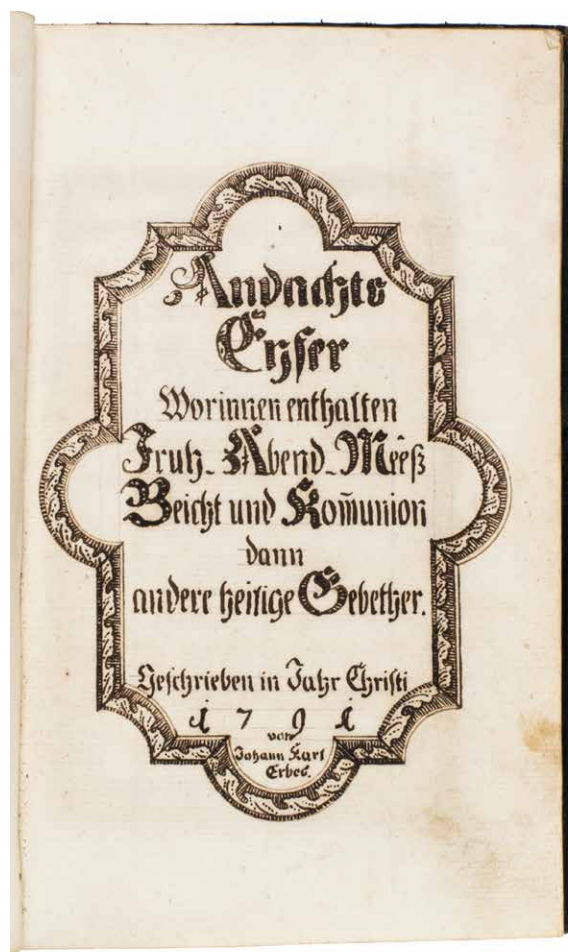 Andachts
Eÿfer
Worinnen enthalten
Fruh- Abend- Meeß
Beicht und Kom̄union
dann
andere heilige Gebether.
Geschrieben in Jahr Christi
1791
von
Johann Karl
Erbes.